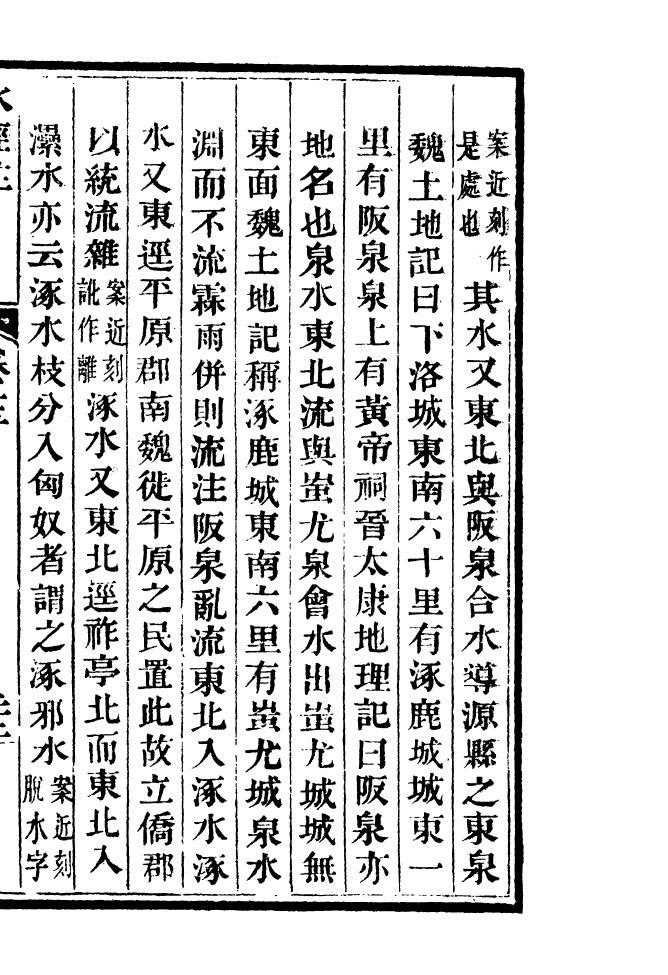 案近刻作是處也其水又東北與阪泉合水導源縣之東泉
魏土地記曰下洛城東南六十里有涿鹿城城東一
里有阪泉泉上有黃帝祠晉太康地理記曰阪泉亦
地名也泉水東北流與蚩尤泉會水出蚩尤城城無
東面魏土地記稱涿鹿城東南六里有蚩尤城泉水
淵而不流霖雨併則流注阪泉亂流東北入涿水涿
水又東逕平原郡南魏徙平原之民置此故立僑郡
以統流雜案近刻訛作離涿水又東北逕祚亭北而東北入
㶟水亦云涿水枝分入匈奴者謂之涿邪水案近刻脫水字
水經注